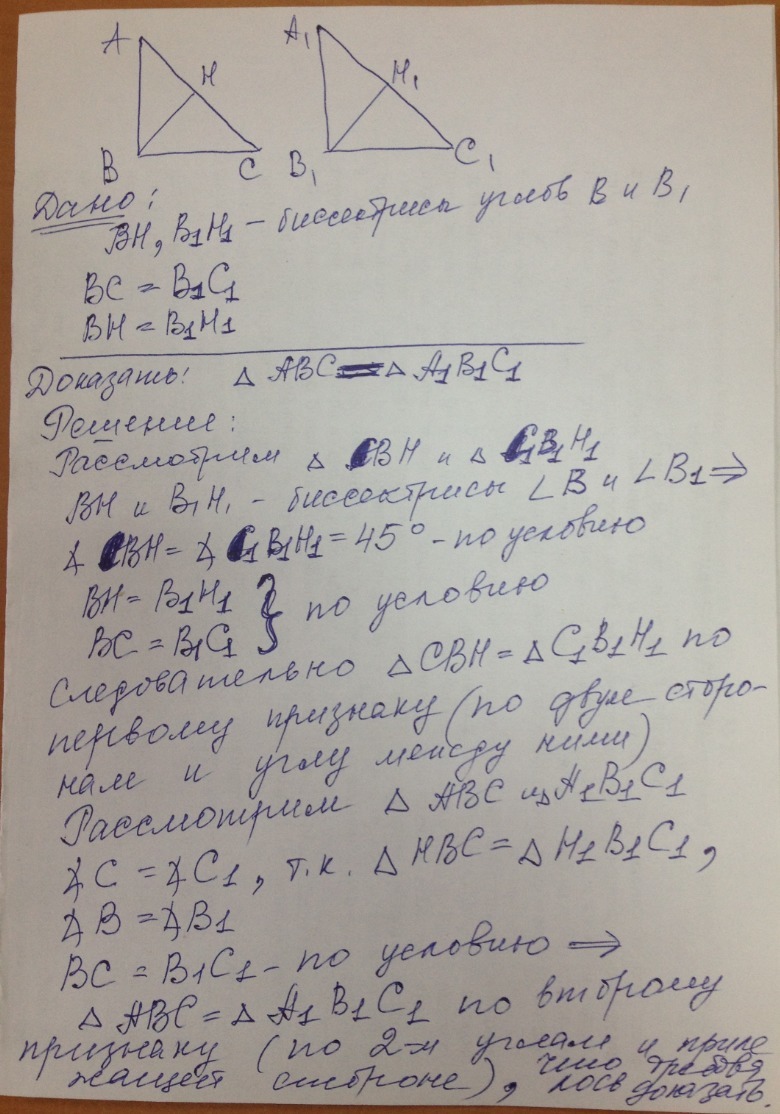 A A₁
H H₁
B C B₁ C₁
Дано:
BH, B₁H₁ - биссектрисы углов B и B₁
BC = B₁C₁
BH = B₁H₁
Доказать: △ ABC = △ A₁B₁C₁
Решение:
Рассмотрим △ CBH и △ C₁B₁H₁
BH и B₁H₁ - биссектрисы ∠B и ∠B₁ ⇒
∡ CBH = ∡ C₁B₁H₁ = 45° - по условию
BH = B₁H₁ } по условию
BC = B₁C₁
Следовательно △CBH = △C₁B₁H₁ по
первому признаку (по двум сторо-
нам и углу между ними)
Рассмотрим △ ABC и △ A₁B₁C₁
∡C = ∡C₁, т.к. △HBC = △H₁B₁C₁,
∡B = ∡B₁
BC = B₁C₁ - по условию ⇒
△ ABC = △ A₁B₁C₁ по второму
признаку (по 2-м углам и приле
жащей стороне), что требова
лось доказать.